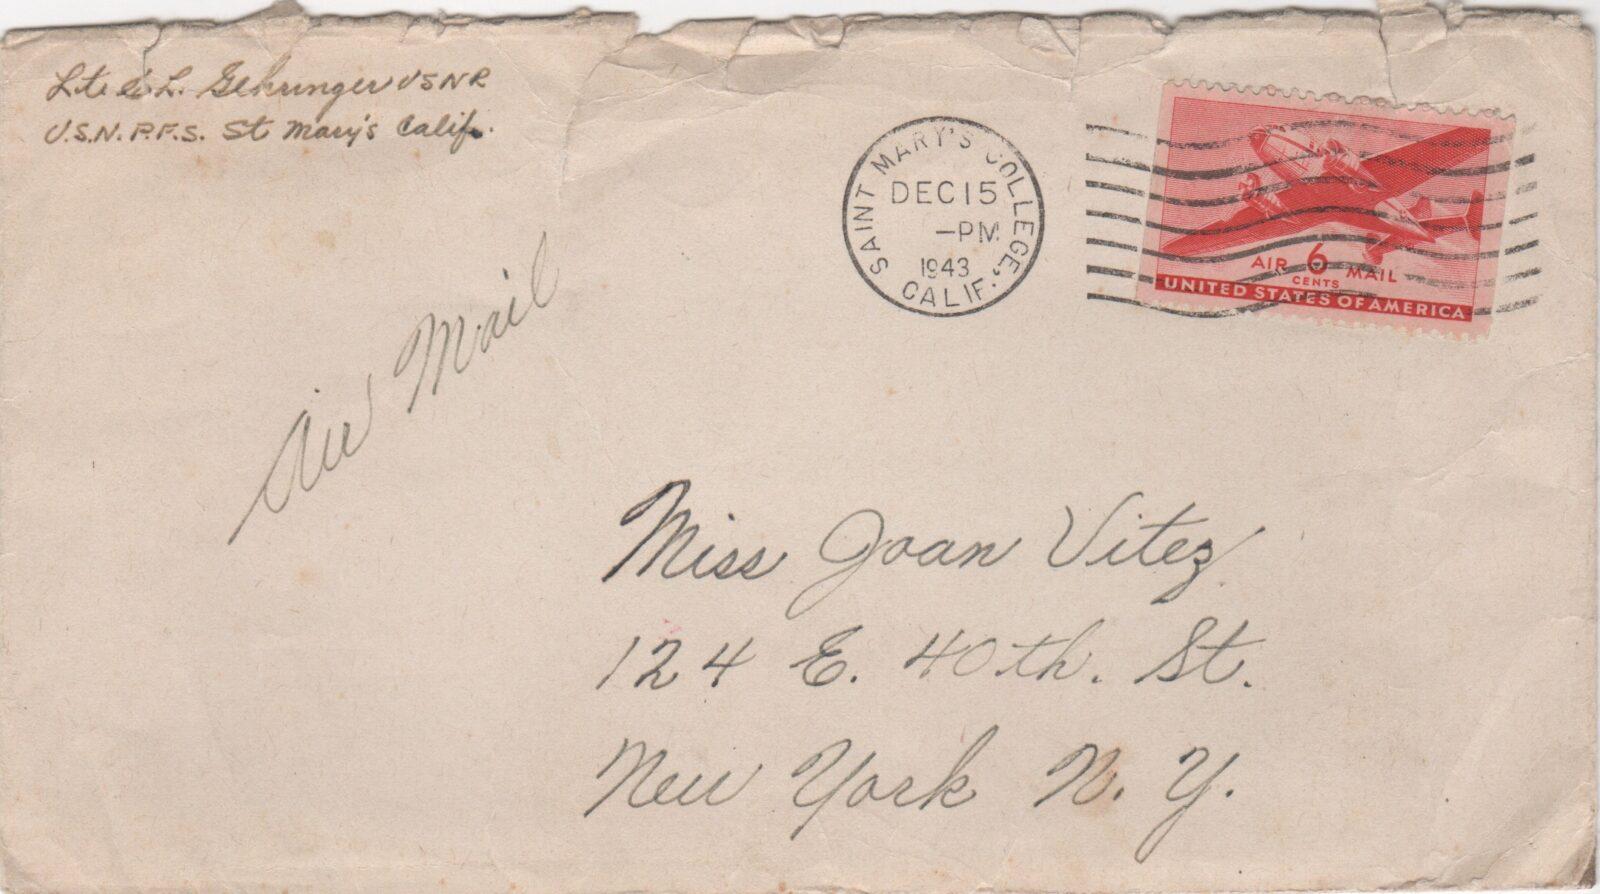 Lt. C. L. Gehringer USNR
U.S.N.P.F.S. St Mary's Calif.
SAINT MARY'S COLLEGE, CALIF.
DEC 15
-PM
1943
AIR 6 MAIL
CENTS
UNITED STATES OF AMERICA
Air Mail
Miss Joan Vitez
124 E. 40th. St.
New York N. Y.